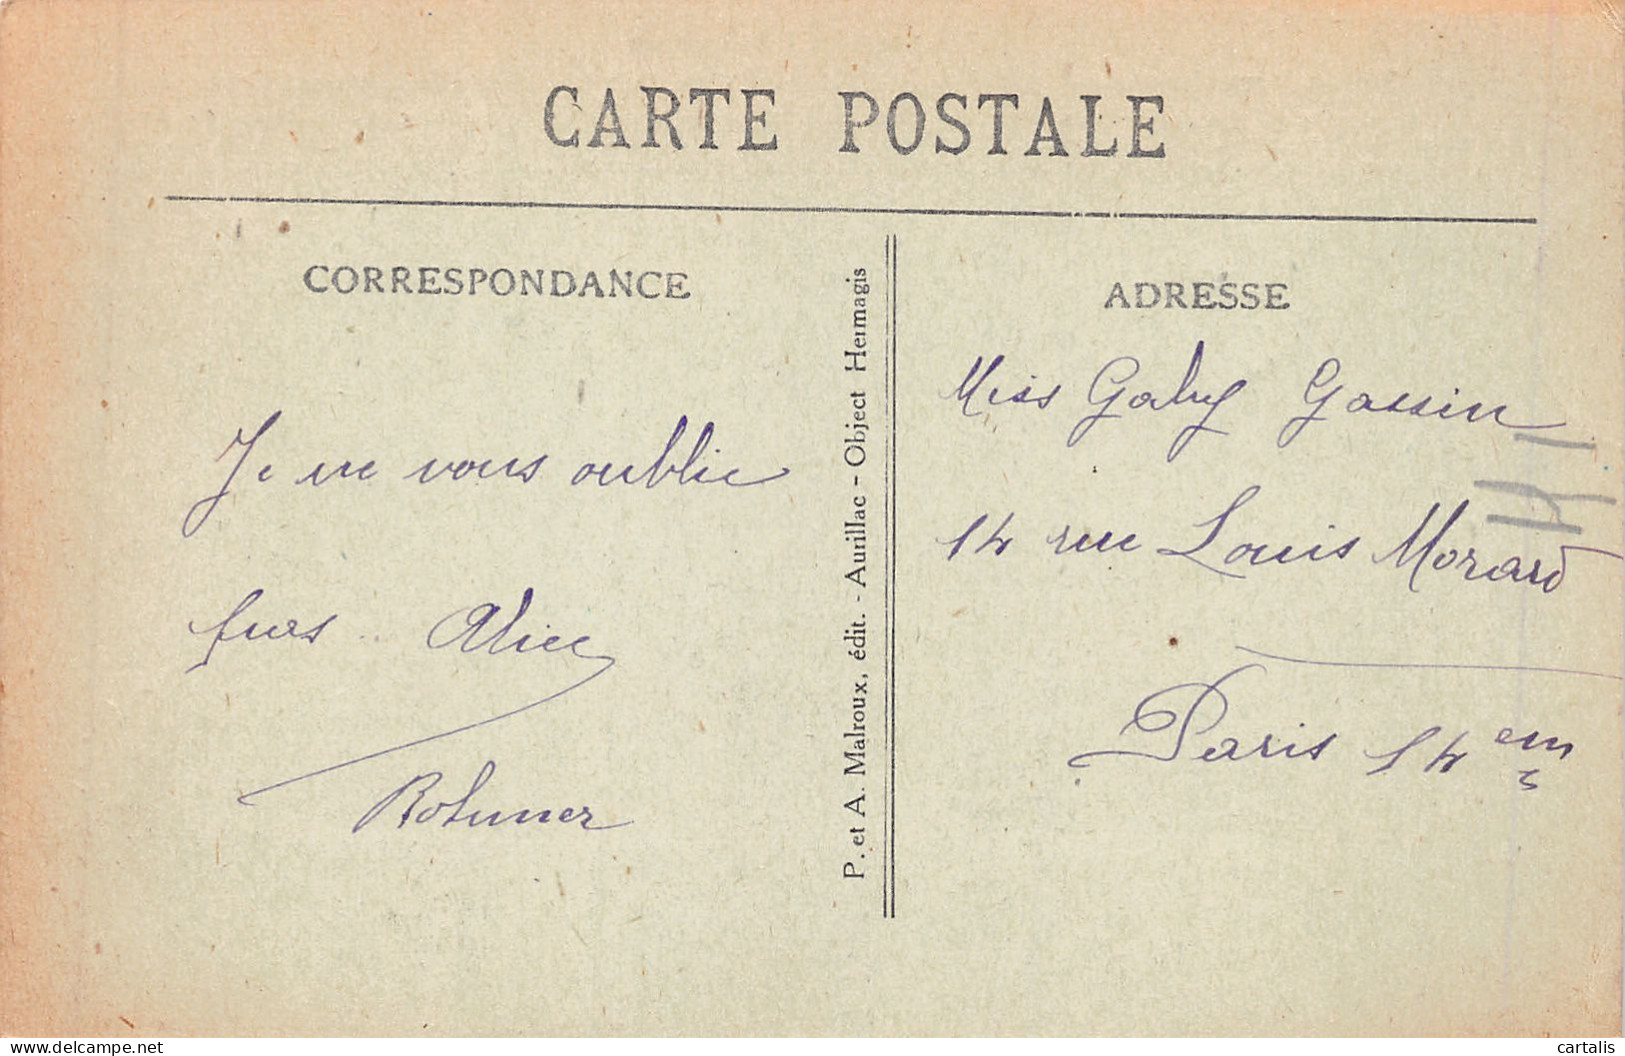 CARTE POSTALE
CORRESPONDANCE
Je ne vous oublie
pas .. Alice
P. et A. Malroux, édit. - Aurillac - Object Hermagis
ADRESSE
Miss Gaby Gassin
14 rue Louis Morard
Paris 14em
delcampe.net
cartalis